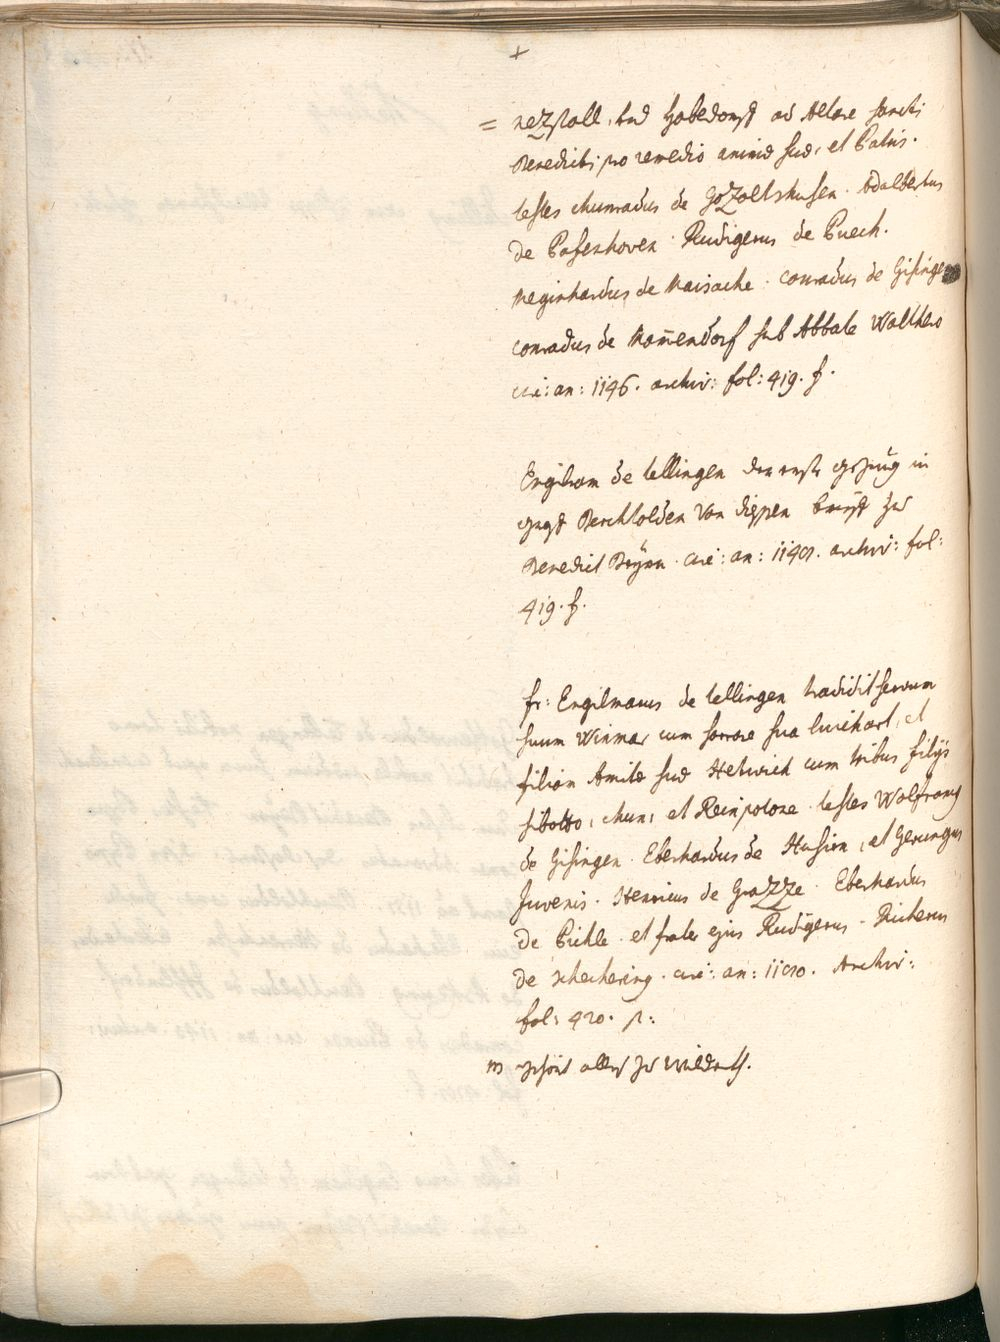 +
= nezstall, und Habedorf ad Altare sancti
Benedicti pro remedio animæ suæ, et Patris.
testes chunradus de Gozoltshusen. Adalbertus
de Pasenhoven. Rudigerus de Puech.
Meginhardus de Maisache. Conradus de Gisingen
conradus de Mamendorf sub Abbate Walthero
circ: an: 1146. archiv: fol: 419. f.
Engilram de tellingen der erste gezeug in
Berchtolden von diessen brieff zu
Benedict Beÿrn. circ: an: archiv: fol:
419. f.
fr: Engilmarus de tellingen tradidit servum
suum Winmar cum sorore sua liukart, et
filiam Amitæ suæ Helwich cum tribus filijs
sibotto, chun, et Reinpotone. testes Wolfram
de Gisingen. Eberhardus de Husirn, et Gerungus
Juvenis. Henricus de Grazze. Eberhardus
de Pichle. et frater ejus Rudigerus. Richerus
de schechering. circ: an: Archiv:
fol: 420. p:
m gehört alles zu Wildenroth.